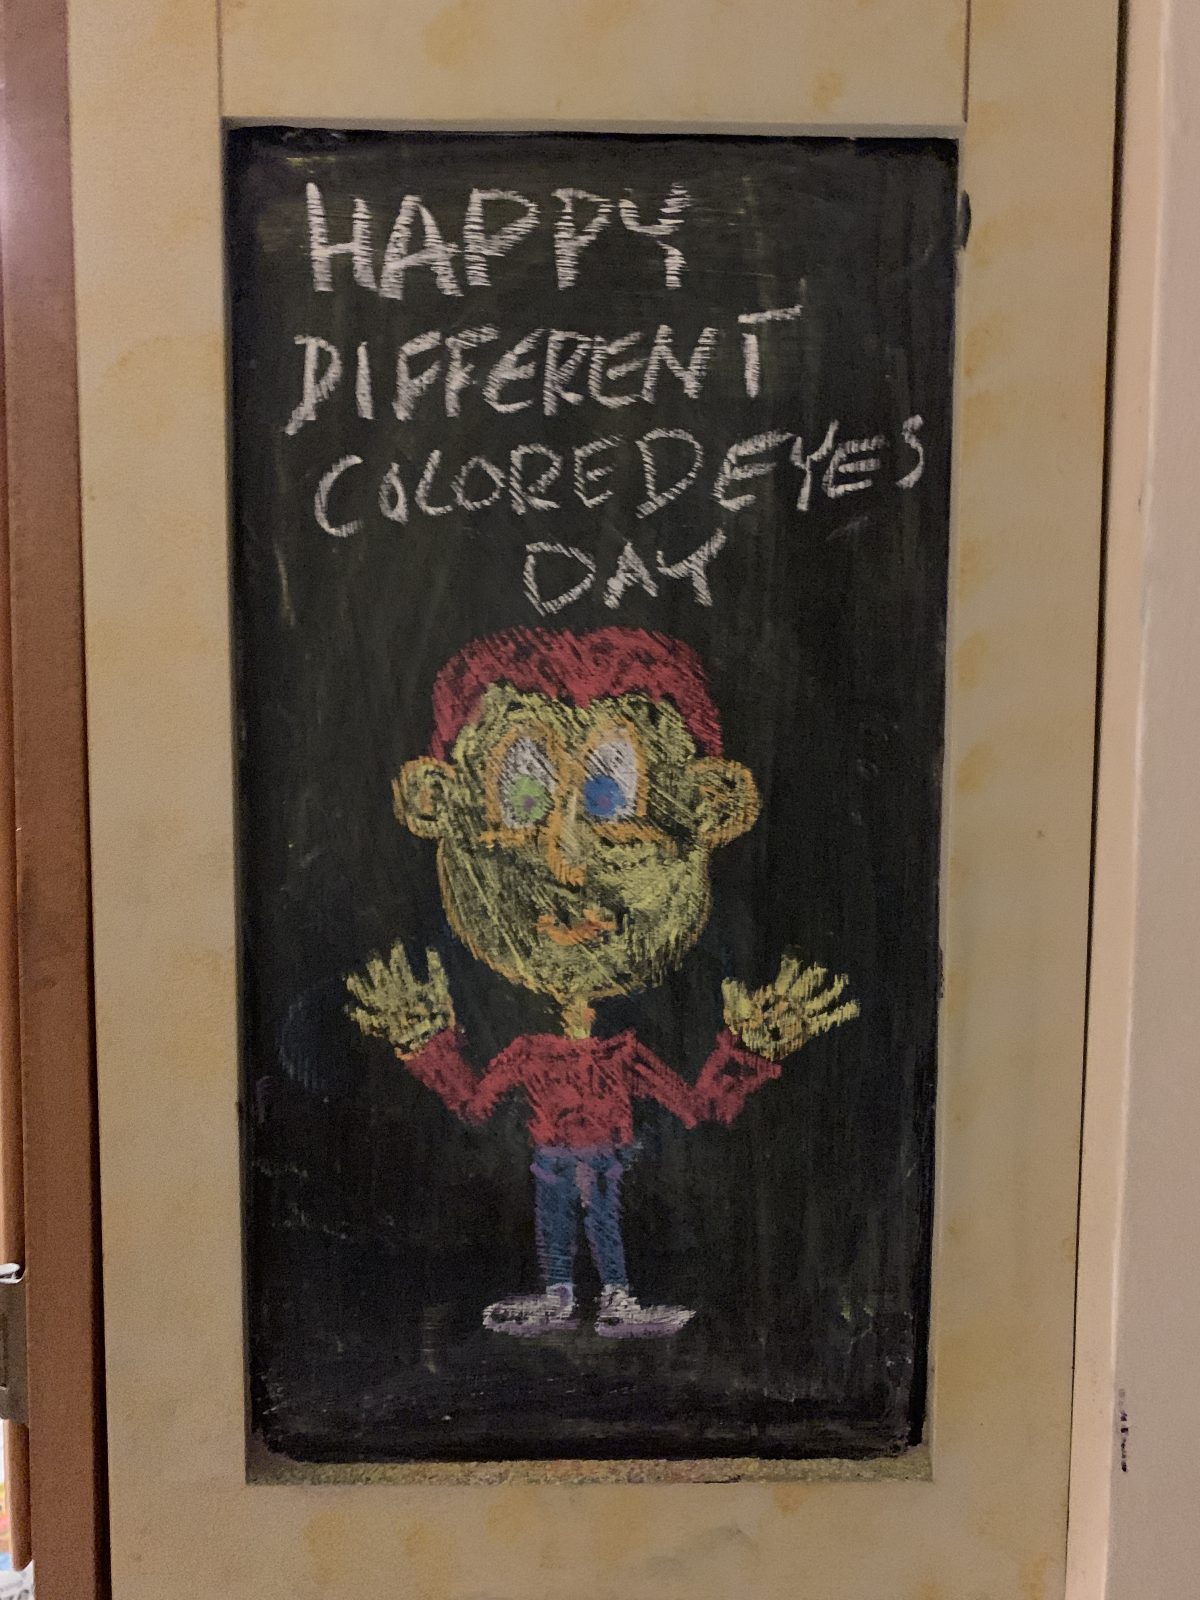 HAPPY
DIFFERENT
COLORED EYES
DAY